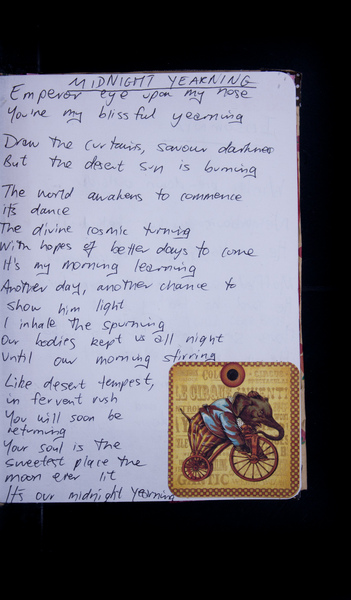 MIDNIGHT YEARNING
Emperor eye upon my nose
You're my blissful yearning
Draw the curtains, savour darkness
But the desert sun is burning
The world awakens to commence
its dance
The divine cosmic turning
With hopes of better days to come
It's my morning learning
Another day, another chance to
show him light
I inhale the spurning
Our bodies kept us all night
Until our morning stirring
Like desert tempest,
in fervent rush
You will soon be
returning
Your soul is the
sweetest place the
moon ever lit
It's our midnight yearning
LE CIRQUE